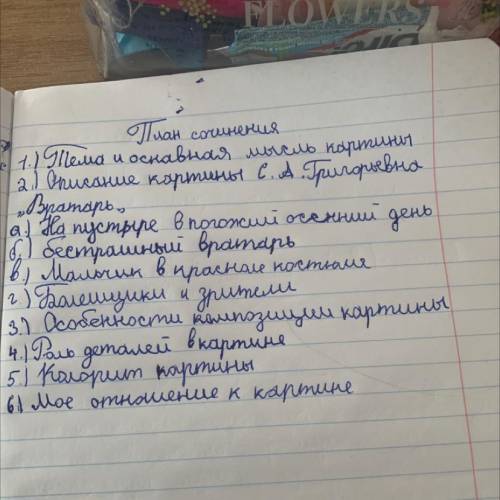 FLOWERS
План сочинения
1.) Тема и оснавная мысль картины
2.) Описание картины С. А. Григорьевна
„Вратарь„
а.) На пустыре в погожий осенний день
б.) бестрашный вратарь
в.) Мальчик в красном костюме
г.) Болешщики и зрители
3.) Особенности композиции картины
4.) Роль деталей в картине
5.) Колорит картины
6.) Мое отношение к картине